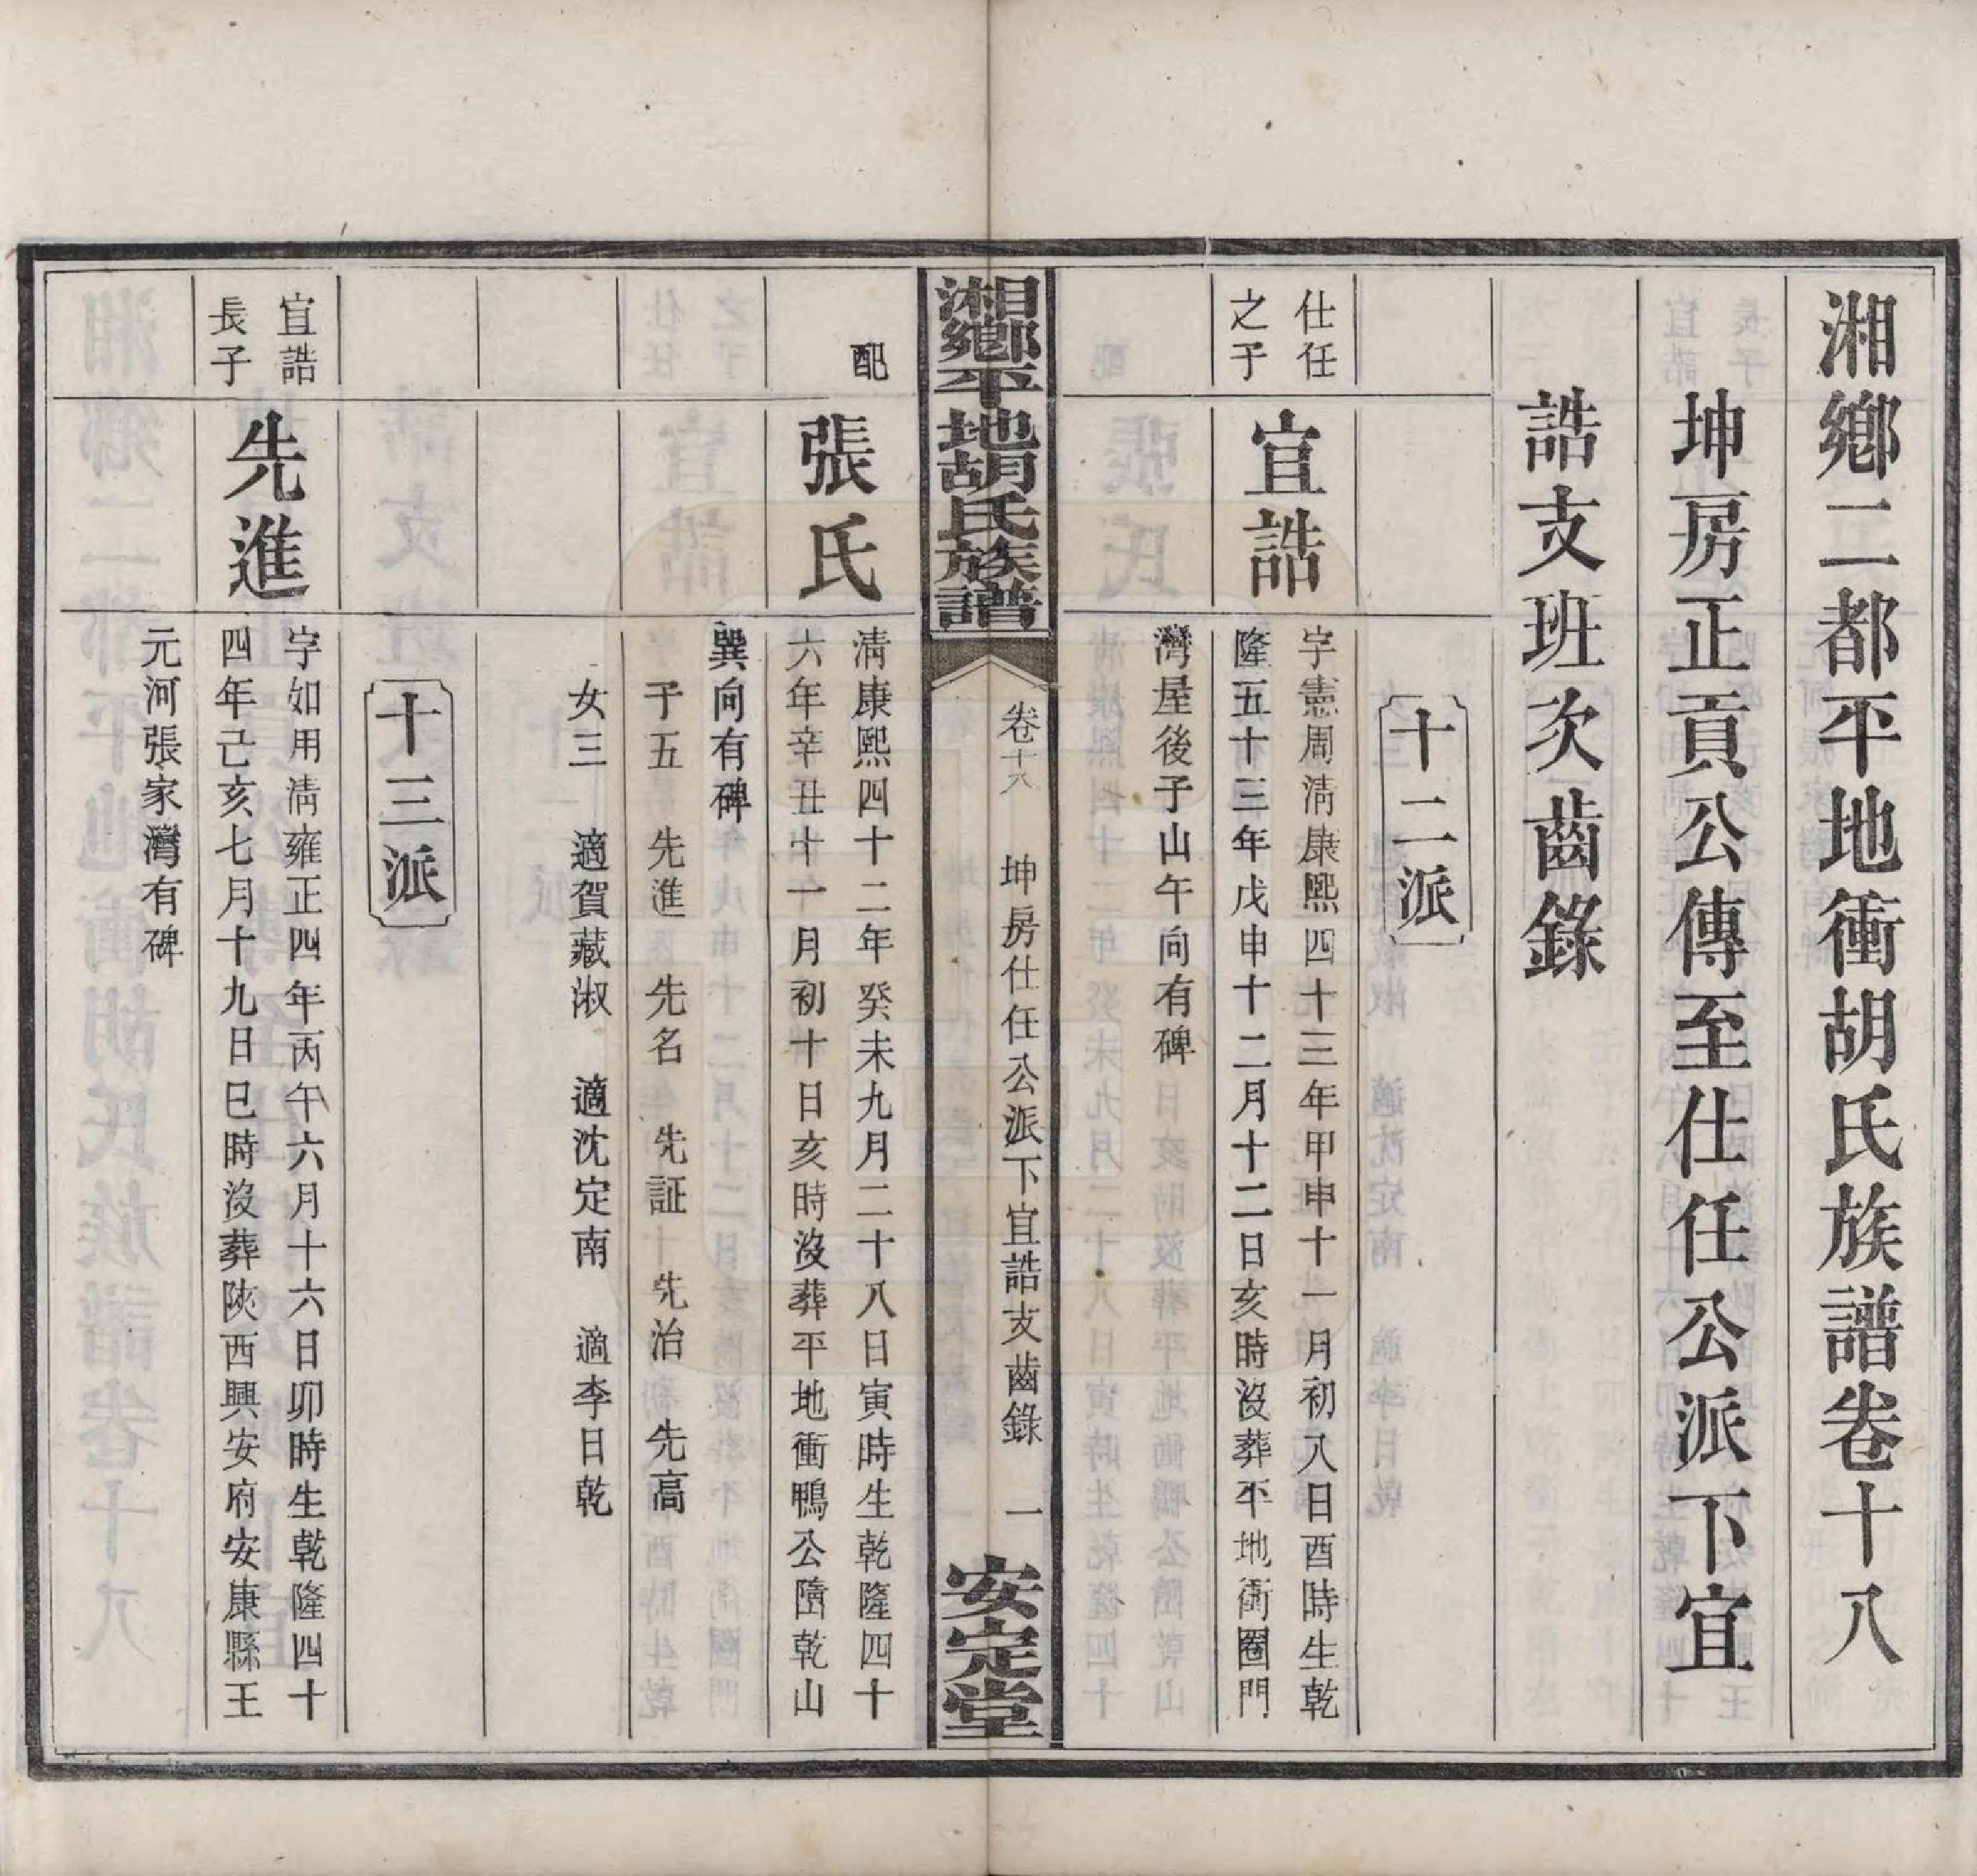 湘鄉二都平地衝胡氏族譜卷十八
坤房正貢公傳至仕任公派下宜
誥支班次齒錄
十二派
仕任
之子
宜誥
字憲周清康熙四十三年甲申十一月初八日酉時生乾
隆五十三年戊申十二月十二日亥時沒葬平地衝圈門
灣屋後子山午向有碑
湘鄉平地胡氏族譜
卷十八
坤房仕任公派下宜誥支齒錄
一
安定堂
配
張氏
清康熙四十二年癸未九月二十八日寅時生乾隆四十
六年辛丑十一月初十日亥時沒葬平地衝鴨公墖乾山
巽向有碑
子五 先進 先名 先証 先治 先高
女三 適賀藏淑 適沈定南 適李日乾
十三派
宜誥
長子
先進
字如用清雍正四年丙午六月十六日卯時生乾隆四十
四年己亥七月十九日巳時沒葬陝西興安府安康縣王
元河張家灣有碑